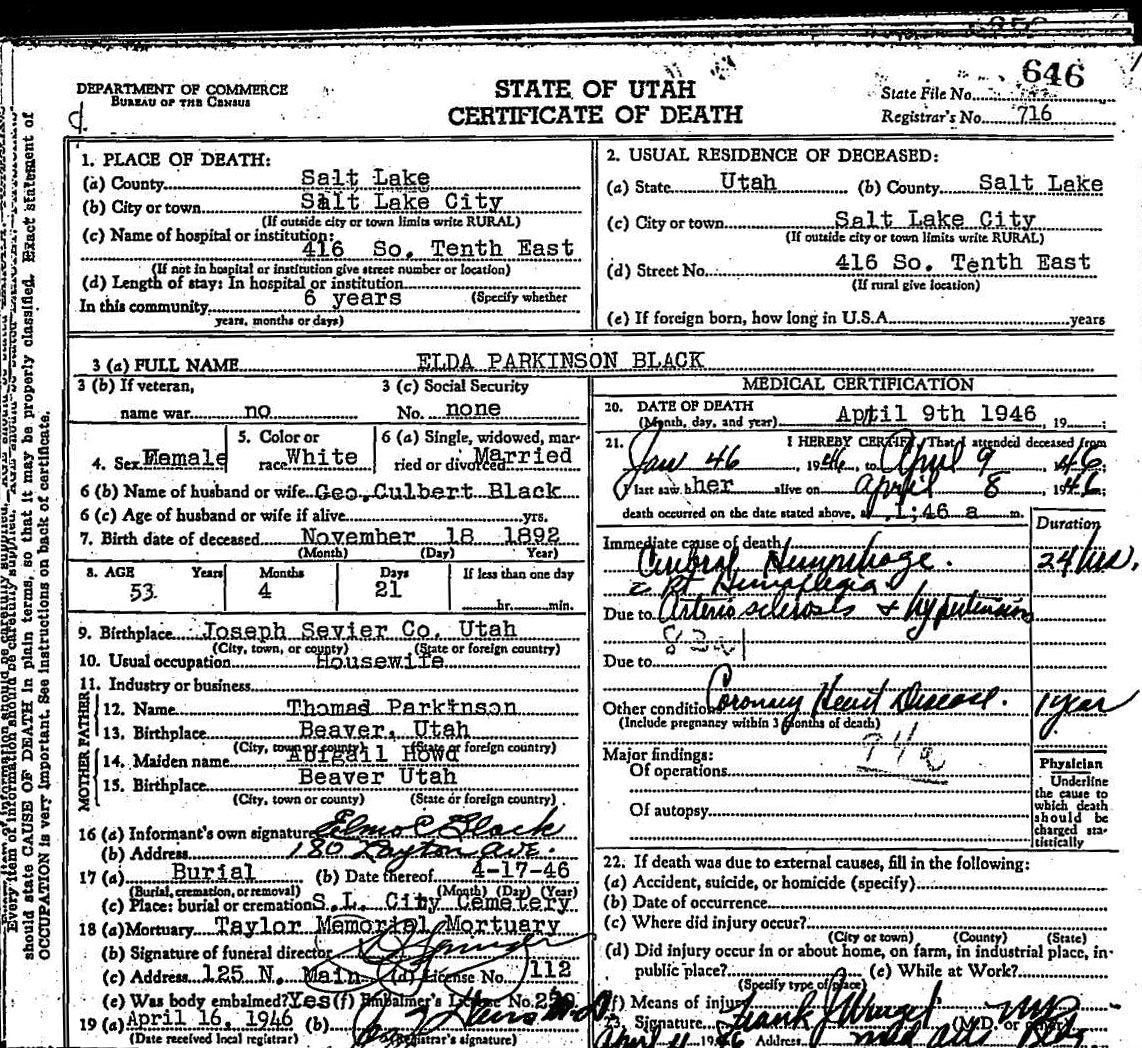 646
DEPARTMENT OF COMMERCE
BUREAU OF THE CENSUS
STATE OF UTAH
CERTIFICATE OF DEATH
State File No.
Registrar's No. 716
1. PLACE OF DEATH:
(a) County Salt Lake
(b) City or town Salt Lake City
(If outside city or town limits write RURAL)
(c) Name of hospital or institution:
416 So. Tenth East
(If not in hospital or institution give street number or location)
(d) Length of stay: In hospital or institution
In this community 6 years (Specify whether
years, months or days)
2. USUAL RESIDENCE OF DECEASED:
(a) State Utah (b) County Salt Lake
(c) City or town Salt Lake City
(If outside city or town limits write RURAL)
(d) Street No. 416 So. Tenth East
(If rural give location)
(e) If foreign born, how long in U.S.A. years
3 (a) FULL NAME ELDA PARKINSON BLACK
3 (b) If veteran,
name war no
3 (c) Social Security
No. none
4. Sex Female
5. Color or
race White
6 (a) Single, widowed, mar-
ried or divorced Married
6 (b) Name of husband or wife Geo. Culbert Black
6 (c) Age of husband or wife if alive yrs.
7. Birth date of deceased November 18 1892
(Month) (Day) Year)
8. AGE Years Months Days If less than one day
53 4 21
hr. min.
9. Birthplace Joseph Sevier Co. Utah
(City, town, or county) (State or foreign country)
10. Usual occupation Housewife
11. Industry or business
FATHER
12. Name Thomas Parkinson
13. Birthplace Beaver, Utah
(City, town or county) (State or foreign country)
MOTHER
14. Maiden name Abigail Howd
15. Birthplace Beaver Utah
(City, town or county) (State or foreign country)
16 (a) Informant's own signature Elmo C Black
(b) Address 180 Layton Ave.
17 (a) Burial (b) Date thereof 4-17-46
(Burial, cremation, or removal) (Month) (Day) (Year)
(c) Place: burial or cremation S.L. City Cemetery
18 (a) Mortuary Taylor Memorial Mortuary
(b) Signature of funeral director
(c) Address 125 N. Main (d) License No. 112
(e) Was body embalmed? Yes (f) Embalmer's License No.
19 (a) April 16, 1946 (b)
(Date received local registrar) (Registrar's signature)
MEDICAL CERTIFICATION
20. DATE OF DEATH
(Month, day, and year) April 9th 1946, 19
21. I HEREBY CERTIFY, That I attended deceased from
Jan 46, 1946, to April 9, 1946;
I last saw her alive on April 8, 1946;
death occurred on the date stated above, at 1;46 a m.
Duration
Immediate cause of death
Cerebral Hemorrhage. 24 hrs.
c Rt Hemaplegia
Due to Arterio sclerosis & hypertension
Due to
Other conditions Coronary Heart Disease. 1 year
(Include pregnancy within 3 months of death)
Major findings:
Of operations
Of autopsy
Physician
Underline
the cause to
which death
should be
charged sta-
tistically
22. If death was due to external causes, fill in the following:
(a) Accident, suicide, or homicide (specify)
(b) Date of occurrence
(c) Where did injury occur?
(City or town) (County) (State)
(d) Did injury occur in or about home, on farm, in industrial place, in-
public place? (e) While at Work?
(Specify type of place)
(f) Means of injury
23. Signature Frank J MD
(M.D. or other)
1946 Address
Every item of information should be carefully supplied.
should state CAUSE OF DEATH in plain terms, so that it may be properly classified. Exact statement of
OCCUPATION is very important. See instructions on back of certificate.